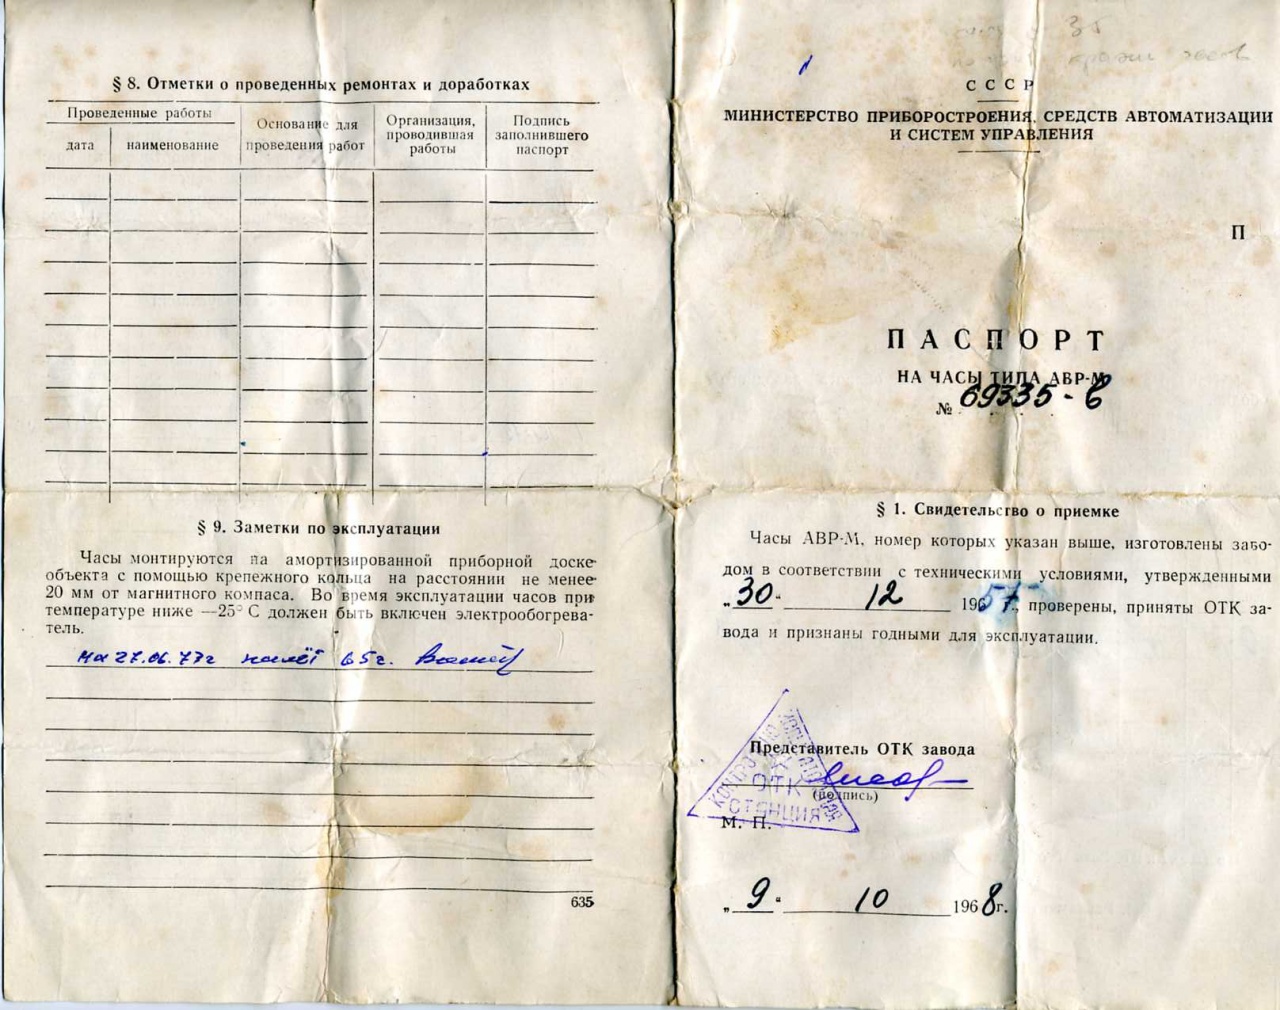 § 8. Отметки о проведенных ремонтах и доработках
Проведенные работы
дата
наименование
Основание для
проведения работ
Организация,
проводившая
работы
Подпись
заполнившего
паспорт
§ 9. Заметки по эксплуатации
Часы монтируются на амортизированной приборной доске
объекта с помощью крепежного кольца на расстоянии не менее
20 мм от магнитного компаса. Во время эксплуатации часов при
температуре ниже —25° С должен быть включен электрообогрева-
тель.
на 27.06.77г налёт 65г.
635
СССР
МИНИСТЕРСТВО ПРИБОРОСТРОЕНИЯ, СРЕДСТВ АВТОМАТИЗАЦИИ
И СИСТЕМ УПРАВЛЕНИЯ
П
ПАСПОРТ
НА ЧАСЫ ТИПА АВР-М
№ 69335-в
§ 1. Свидетельство о приемке
Часы АВР-М, номер которых указан выше, изготовлены заво-
дом в соответствии с техническими условиями, утвержденными
„30“ 12 1957г., проверены, приняты ОТК за-
вода и признаны годными для эксплуатации.
Представитель ОТК завода
(подпись)
ОТК
СТАНЦИЯ
М. П.
„9“ 10 1968г.